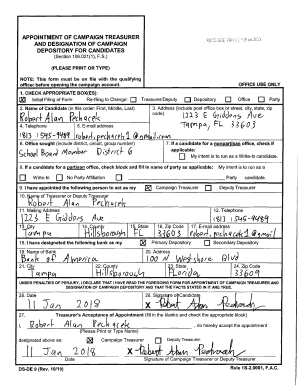 APPOINTMENT OF CAMPAIGN TREASURER
AND DESIGNATION OF CAMPAIGN
DEPOSITORY FOR CANDIDATES
(Section 106.021(1), F.S.)
(PLEASE PRINT OR TYPE)
NOTE: This form must be on file with the qualifying
officer before opening the campaign account.
OFFICE USE ONLY
1. CHECK APPROPRIATE BOX(ES):
Initial Filing of Form Re-filing to Change: Treasurer/Deputy Depository Office Party
2. Name of Candidate (in this order: First, Middle, Last)
Robert Alan Pechacek
3. Address (include post office box or street, city, state, zip code)
1223 E Giddons Ave
Tampa, FL 33603
4. Telephone
(813) 545-9489
5. E-mail address
robert.pechacek1@gmail.com
6. Office sought (include district, circuit, group number)
School Board Member District 6
7. If a candidate for a nonpartisan office, check if applicable:
My intent is to run as a Write-In candidate.
8. If a candidate for a partisan office, check block and fill in name of party as applicable: My intent is to run as a
Write-In No Party Affiliation Party candidate.
9. I have appointed the following person to act as my Campaign Treasurer Deputy Treasurer
10. Name of Treasurer or Deputy Treasurer
Robert Alan Pechacek
11. Mailing Address
1223 E Giddons Ave
12. Telephone
(813) 545-9489
13. City
Tampa
14. County
Hillsborough
15. State
FL
16. Zip Code
33603
17. E-mail address
robert.pechacek1@gmail
18. I have designated the following bank as my Primary Depository Secondary Depository
19. Name of Bank
Bank of America
20. Address
100 N Westshore Blvd
21. City
Tampa
22. County
Hillsborough
23. State
Florida
24. Zip Code
33609
UNDER PENALTIES OF PERJURY, I DECLARE THAT I HAVE READ THE FOREGOING FORM FOR APPOINTMENT OF CAMPAIGN TREASURER AND
DESIGNATION OF CAMPAIGN DEPOSITORY AND THAT THE FACTS STATED IN IT ARE TRUE.
25. Date
11 Jan 2018
26. Signature of Candidate
X Robert Alan Pechacek
27. Treasurer's Acceptance of Appointment (fill in the blanks and check the appropriate block)
I, Robert Alan Pechacek , do hereby accept the appointment
(Please Print or Type Name)
designated above as: Campaign Treasurer Deputy Treasurer.
11 Jan 2018
X Robert Alan Pechacek
Date
Signature of Campaign Treasurer or Deputy Treasurer
DS-DE 9 (Rev. 10/10)
Rule 1S-2.0001, F.A.C.